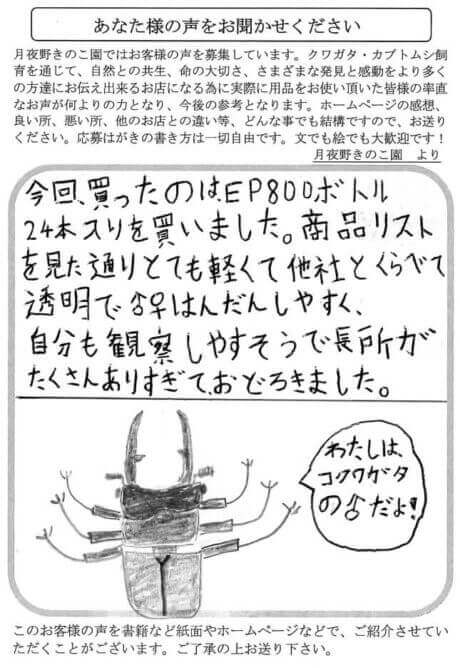 あなた様の声をお聞かせください
月夜野きのこ園ではお客様の声を募集しています。クワガタ・カブトムシ飼
育を通じて、自然との共生、命の大切さ、さまざまな発見と感動をより多く
の方達にお伝え出来るお店になる為に実際に用品をお使い頂いた皆様の率直
なお声が何よりの力となり、今後の参考となります。ホームページの感想、
良い所、悪い所、他のお店との違い等、どんな事でも結構ですので、お送り
ください。応募はがきの書き方は一切自由です。文でも絵でも大歓迎です！
月夜野きのこ園　より
今回、買ったのは、EP800ボトル
24本入りを買いました。商品リスト
を見た通りとても軽くて他社とくらべて
透明で♂♀はんだんしやすく、
自分も観察しやすそうで長所が
たくさんありすぎて、おどろきました。
わたしは、
コクワガタ
の♂だよ!
このお客様の声を書籍など紙面やホームページなどで、ご紹介させてい
ただくことがございます。ご了承の上お送り下さい。